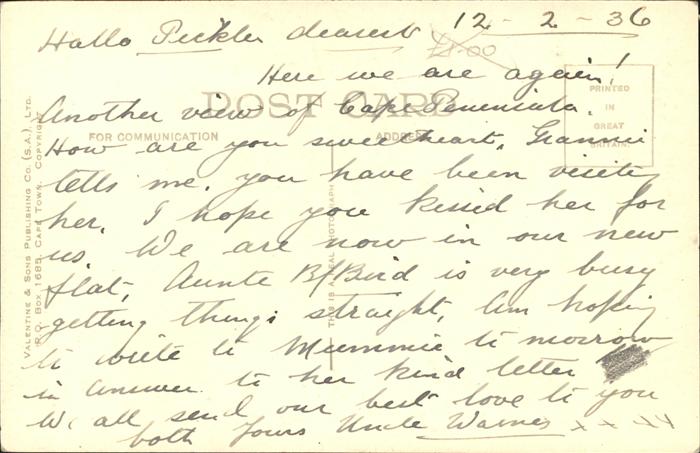 12 - 2 - 36
Hallo Pickles dearest
£8.00
Here we are again!
POST CARD
Another view of Cape Peninsula.
FOR COMMUNICATION
ADDRESS
PRINTED
IN
GREAT
BRITAIN.
How are you sweetheart, Grannie
tells me, you have been visiting
her, I hope you kissed her for
us. We are now in our new
flat, Aunte B/Bird is very busy
getting things straight, am hoping
to write to Mummie to morrow
in answer to her kind letter
We all send our best love to you
both Yours Uncle x x x x
VALENTINE & SONS PUBLISHING CO. (S.A.), LTD.
P.O. BOX 1685, CAPE TOWN. COPYRIGHT
THIS IS A REAL PHOTOGRAPH